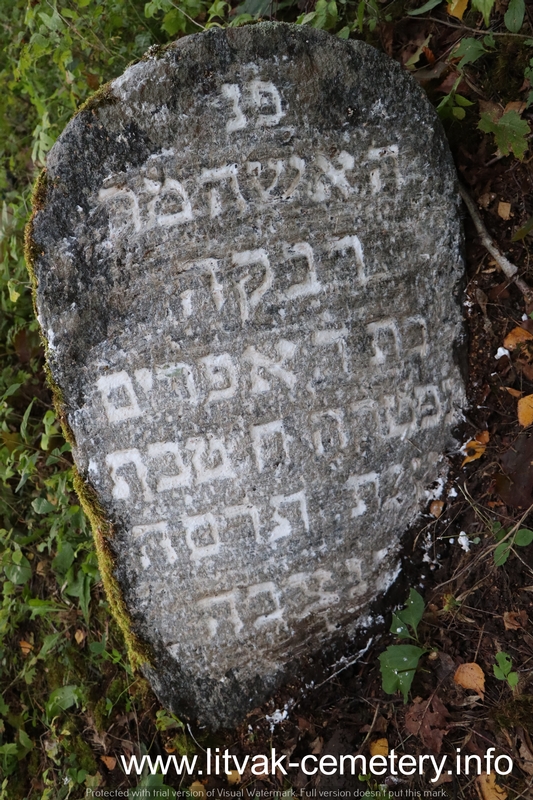 פנ
האשה מר
רבקה
בת ר אפרים
נפטרה ח טבת
שנת תרסה
תנצבה
www.litvak-cemetery.info
Protected with trial version of Visual Watermark. Full version doesn't put this mark.